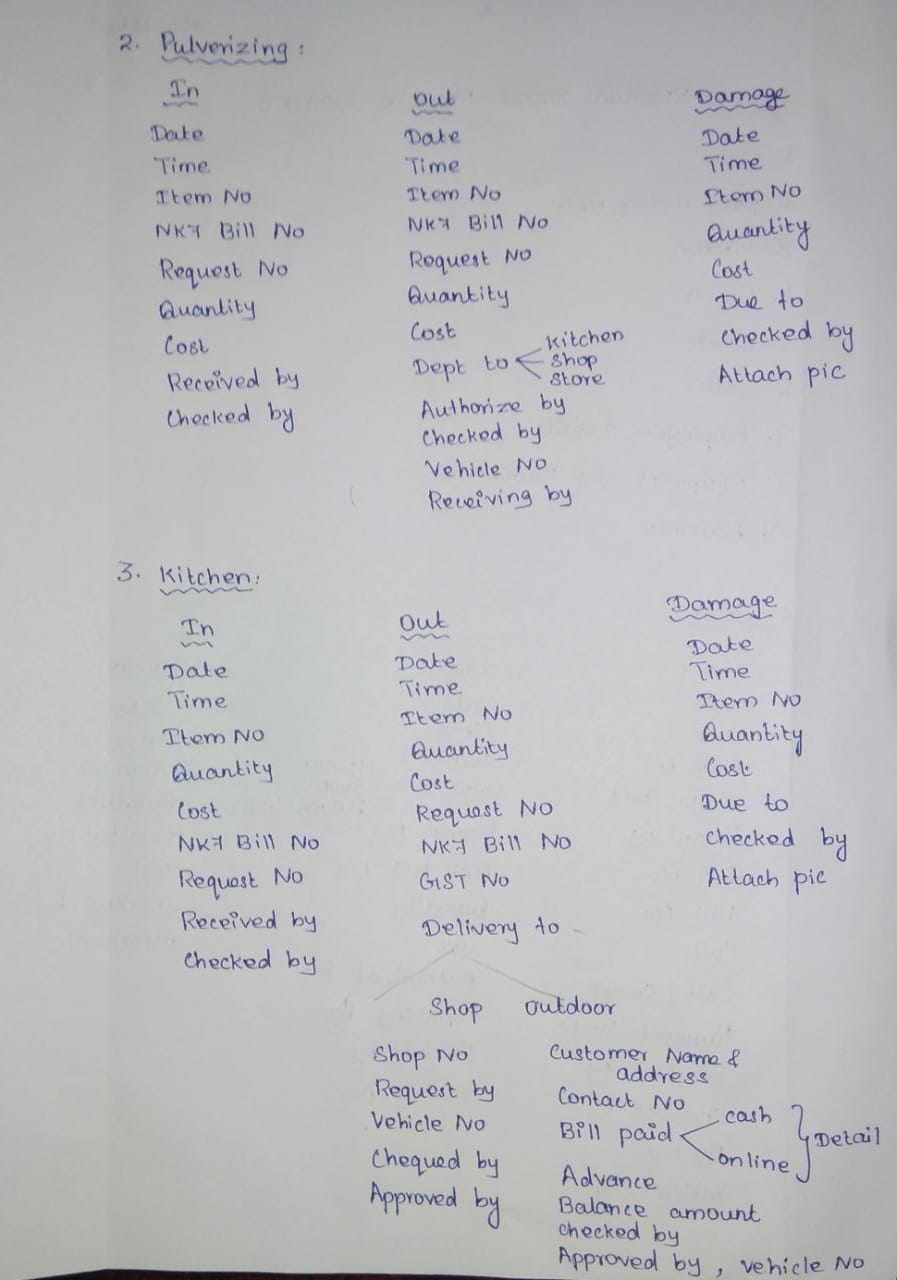 2. Pulverizing :
In
Date
Time
Item No
NK7 Bill No
Request No
Quantity
Cost
Received by
Checked by
Out
Date
Time
Item No
NK7 Bill No
Request No
Quantity
Cost
Dept to
Kitchen
Shop
Store
Authorize by
Checked by
Vehicle No
Receiving by
Damage
Date
Time
Item No
Quantity
Cost
Due to
Checked by
Attach pic
3. Kitchen:
In
Date
Time
Item No
Quantity
Cost
NK7 Bill No
Request No
Received by
Checked by
Out
Date
Time
Item No
Quantity
Cost
Request No
NK7 Bill No
GST No
Delivery to
Damage
Date
Time
Item No
Quantity
Cost
Due to
Checked by
Attach pic
Shop
Shop No
Request by
Vehicle No
Chequed by
Approved by
Outdoor
Customer Name &
address
Contact No
Bill paid
cash
online
Detail
Advance
Balance amount
checked by
Approved by , vehicle No